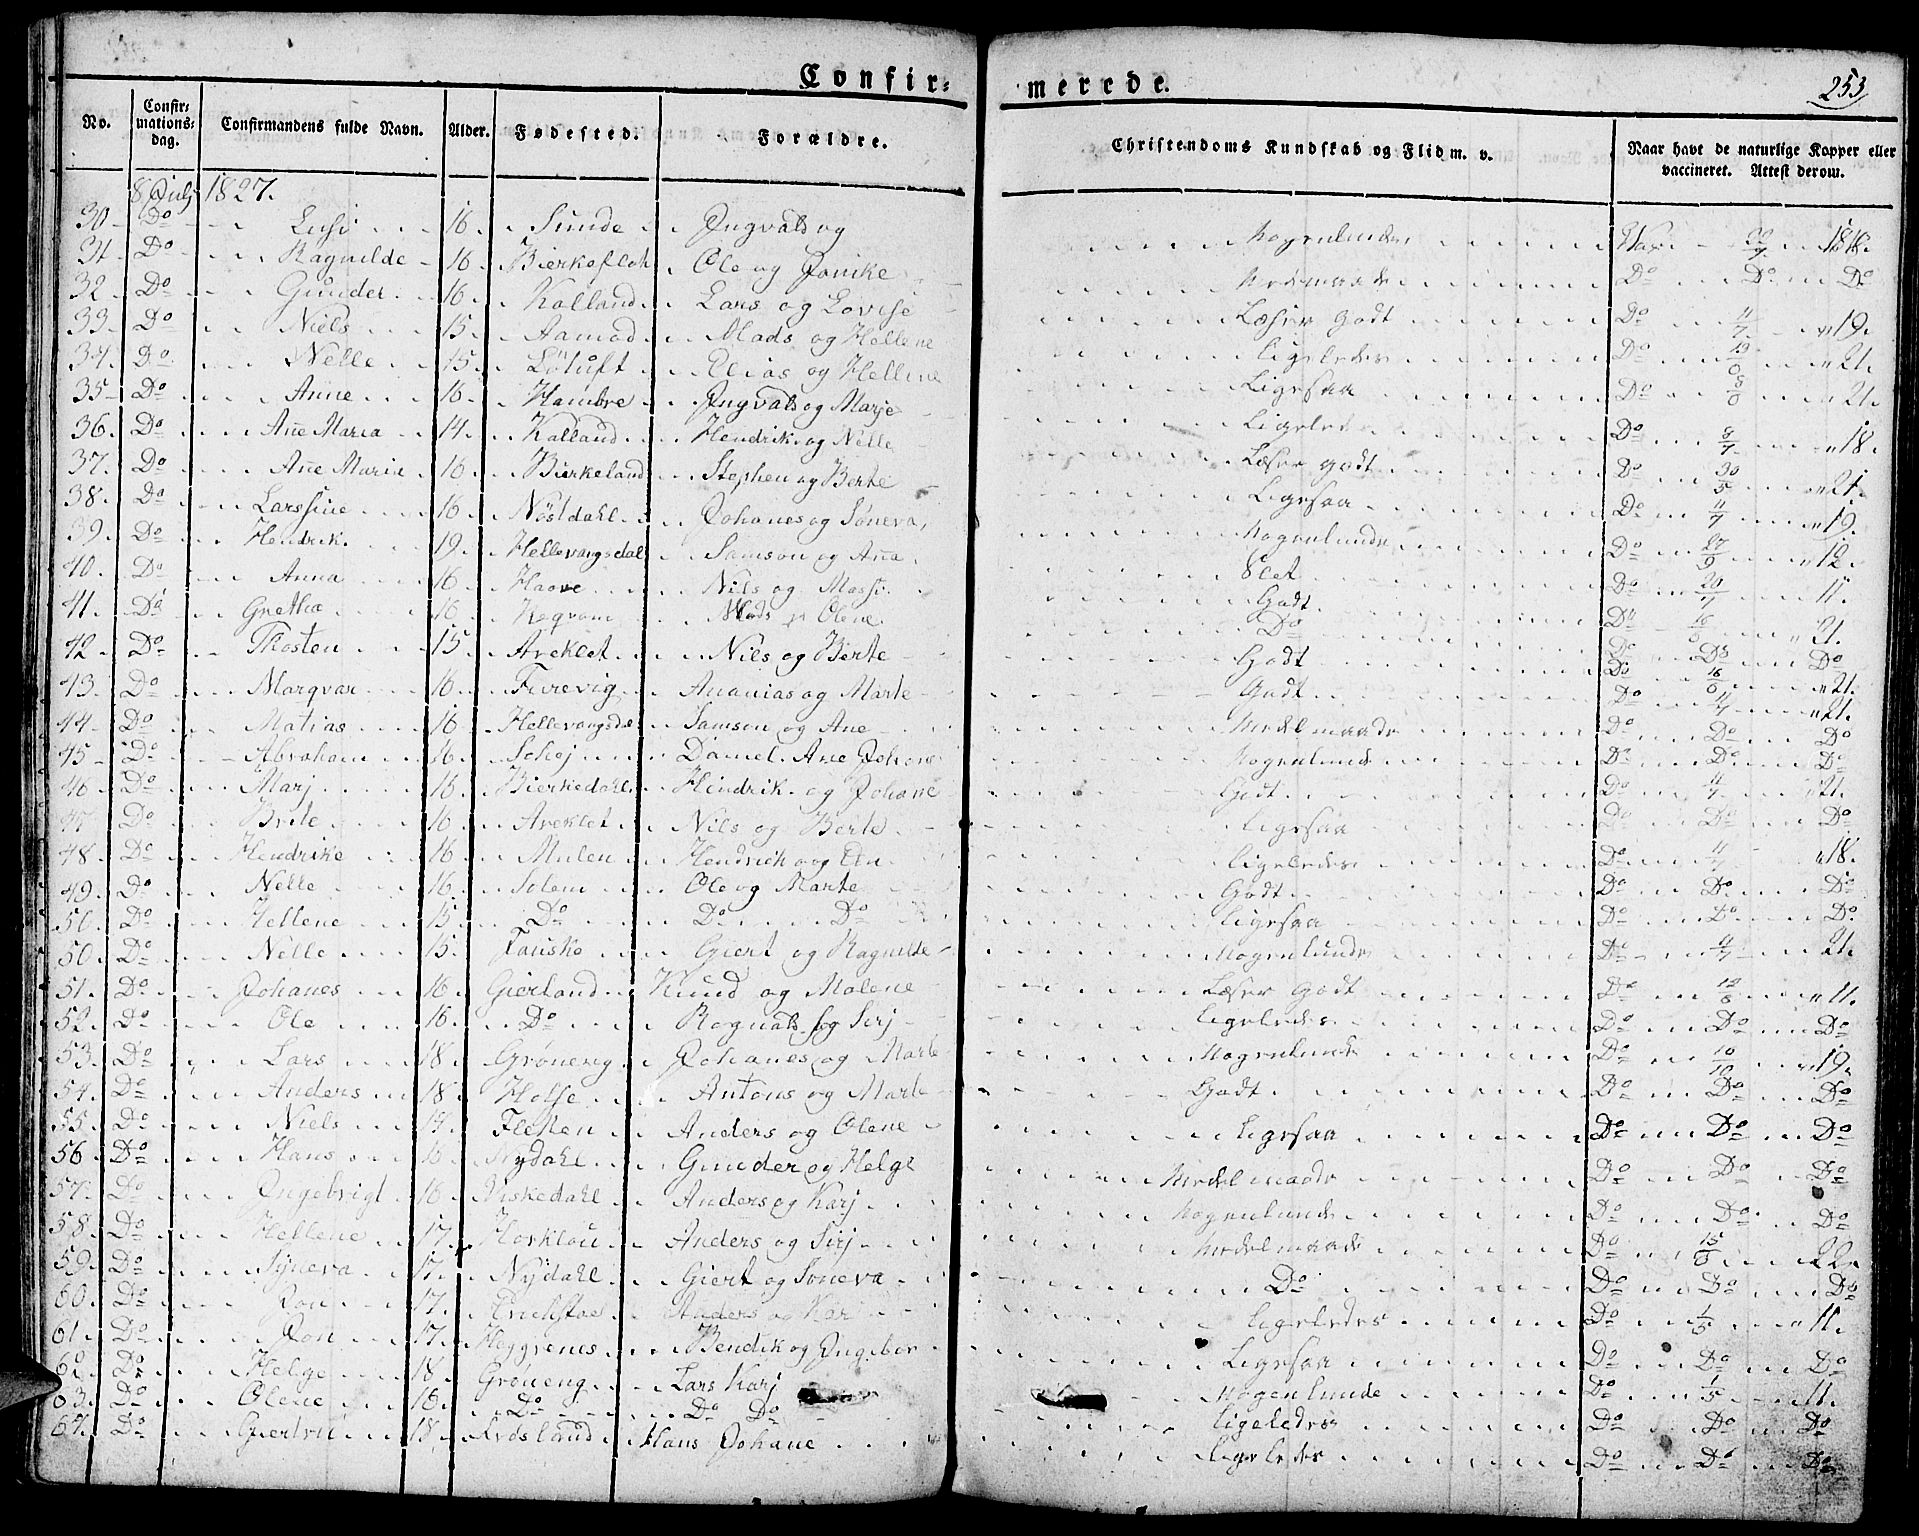 Confir= merede. 253
No. Confir= mations= dag. Confirmandens fulde Navn. Alder. Fødested. Forældre. Christendoms Kundskab og Flid m. v. Naar havt de naturlige Kopper eller vaccineret. Attest derom.
8 July 1827.
30 Do Lusi 16 Sunde Ingvald og Nogenlunde Vax
31 Do Ragnilde 16 Bierkefloh Ole og Jonike Medemaade Do Do Do
32 Do Gunder 16 Kalland Lars og Lovise Læser Godt Do 11/7 19
33 Do Niels 15 Aamod Mads og Hellene Ligeledes Do 21
34 Do Nelle 15 Löluft Elias og Hellene Ligesaa Do 21
35 Do Anne 16 Hambre Ingvald og Marje Ligeledes Do 8/7 18
36 Do Ane Maria 14 Kalland Hendrik og Nelle Læser godt Do 30/5 21
37 Do Ane Maria 16 Birkeland Stephen og Berte Ligesaa Do 11/7 19
38 Do Larssine 16 Nöstdahl Johanes og Söneva Nogenlunde Do 27/9 12
39 Do Hendrik 19 Hellevangsdal Samson og Ana Slet Do 20/7 11
40 Do Anna 16 Haave Nils og Massi Godt Do
41 Do Grethe 16 Mads og Olene Do Do 21
42 Do Thosten 15 Areklet Nils og Berte Godt Do Do Do
43 Do Marqvar 16 Furevig Ananias og Marte Godt Do 21
44 Do Matias 16 Hellevangsdal Samson og Ane Medelmaade Do Do Do
45 Do Abraham 16 Daniel Ane Johane Nogenlunde Do Do Do
46 Do Marj 16 Bierkedahl Hindrik og Johane Godt Do 11/7 21
47 Do Brite 16 Areklet Nils og Berte Ligesaa Do Do Do
48 Do Hendrike 16 Mulen Hendrich og Ligeledes Do 11/7 18
49 Do Nelle 16 Solem Ole og Marte Godt Do Do Do
50 Do Hellene 15 Do Do Do Ligesaa Do Do Do
50 Do Nelle 15 Fauske Giert og Ragnilde Nogenlunde Do 11/7 21
51 Do Johanes 16 Gierland Knud og Malene Læser Godt Do 11
52 Do Ole 16 Do Rognald og Sirj Ligeledes Do Do Do
53 Do Lars 18 Gröneng Johanes og Marte Nogenlunde Do 10/10 19
54 Do Anders 18 Holse Antons og Marte Godt Do Do Do
55 Do Niels 17 Flekken Anders og Olene Ligesaa Do Do Do
56 Do Hans 16 Nydahl Gunder og Helge Medelmaade Do Do Do
57 Do Ingebrigt 16 Viskedahl Anders og Karj Nogenlunde Do Do Do
58 Do Hellene 17 Horklou Anders og Sirj Medelmaade Do 22
59 Do Syneva 17 Nydahl Giert og Söneva Do Do Do Do
60 Do Jon 17 Erichstae Anders og Kari Ligeledes Do 1/5 11
61 Do Jon 17 Heggrenes Bendik og Ingebor Ligesaa Do Do Do
62 Do Helge 18 Gröneng Lars Karj Nogenlunde Do 1/5 11
63 Do Olene 16 Do Do Do Ligeledes Do Do Do
64 Do Giertru 18 Frosland Hans Johane Ligeledes Do Do Do